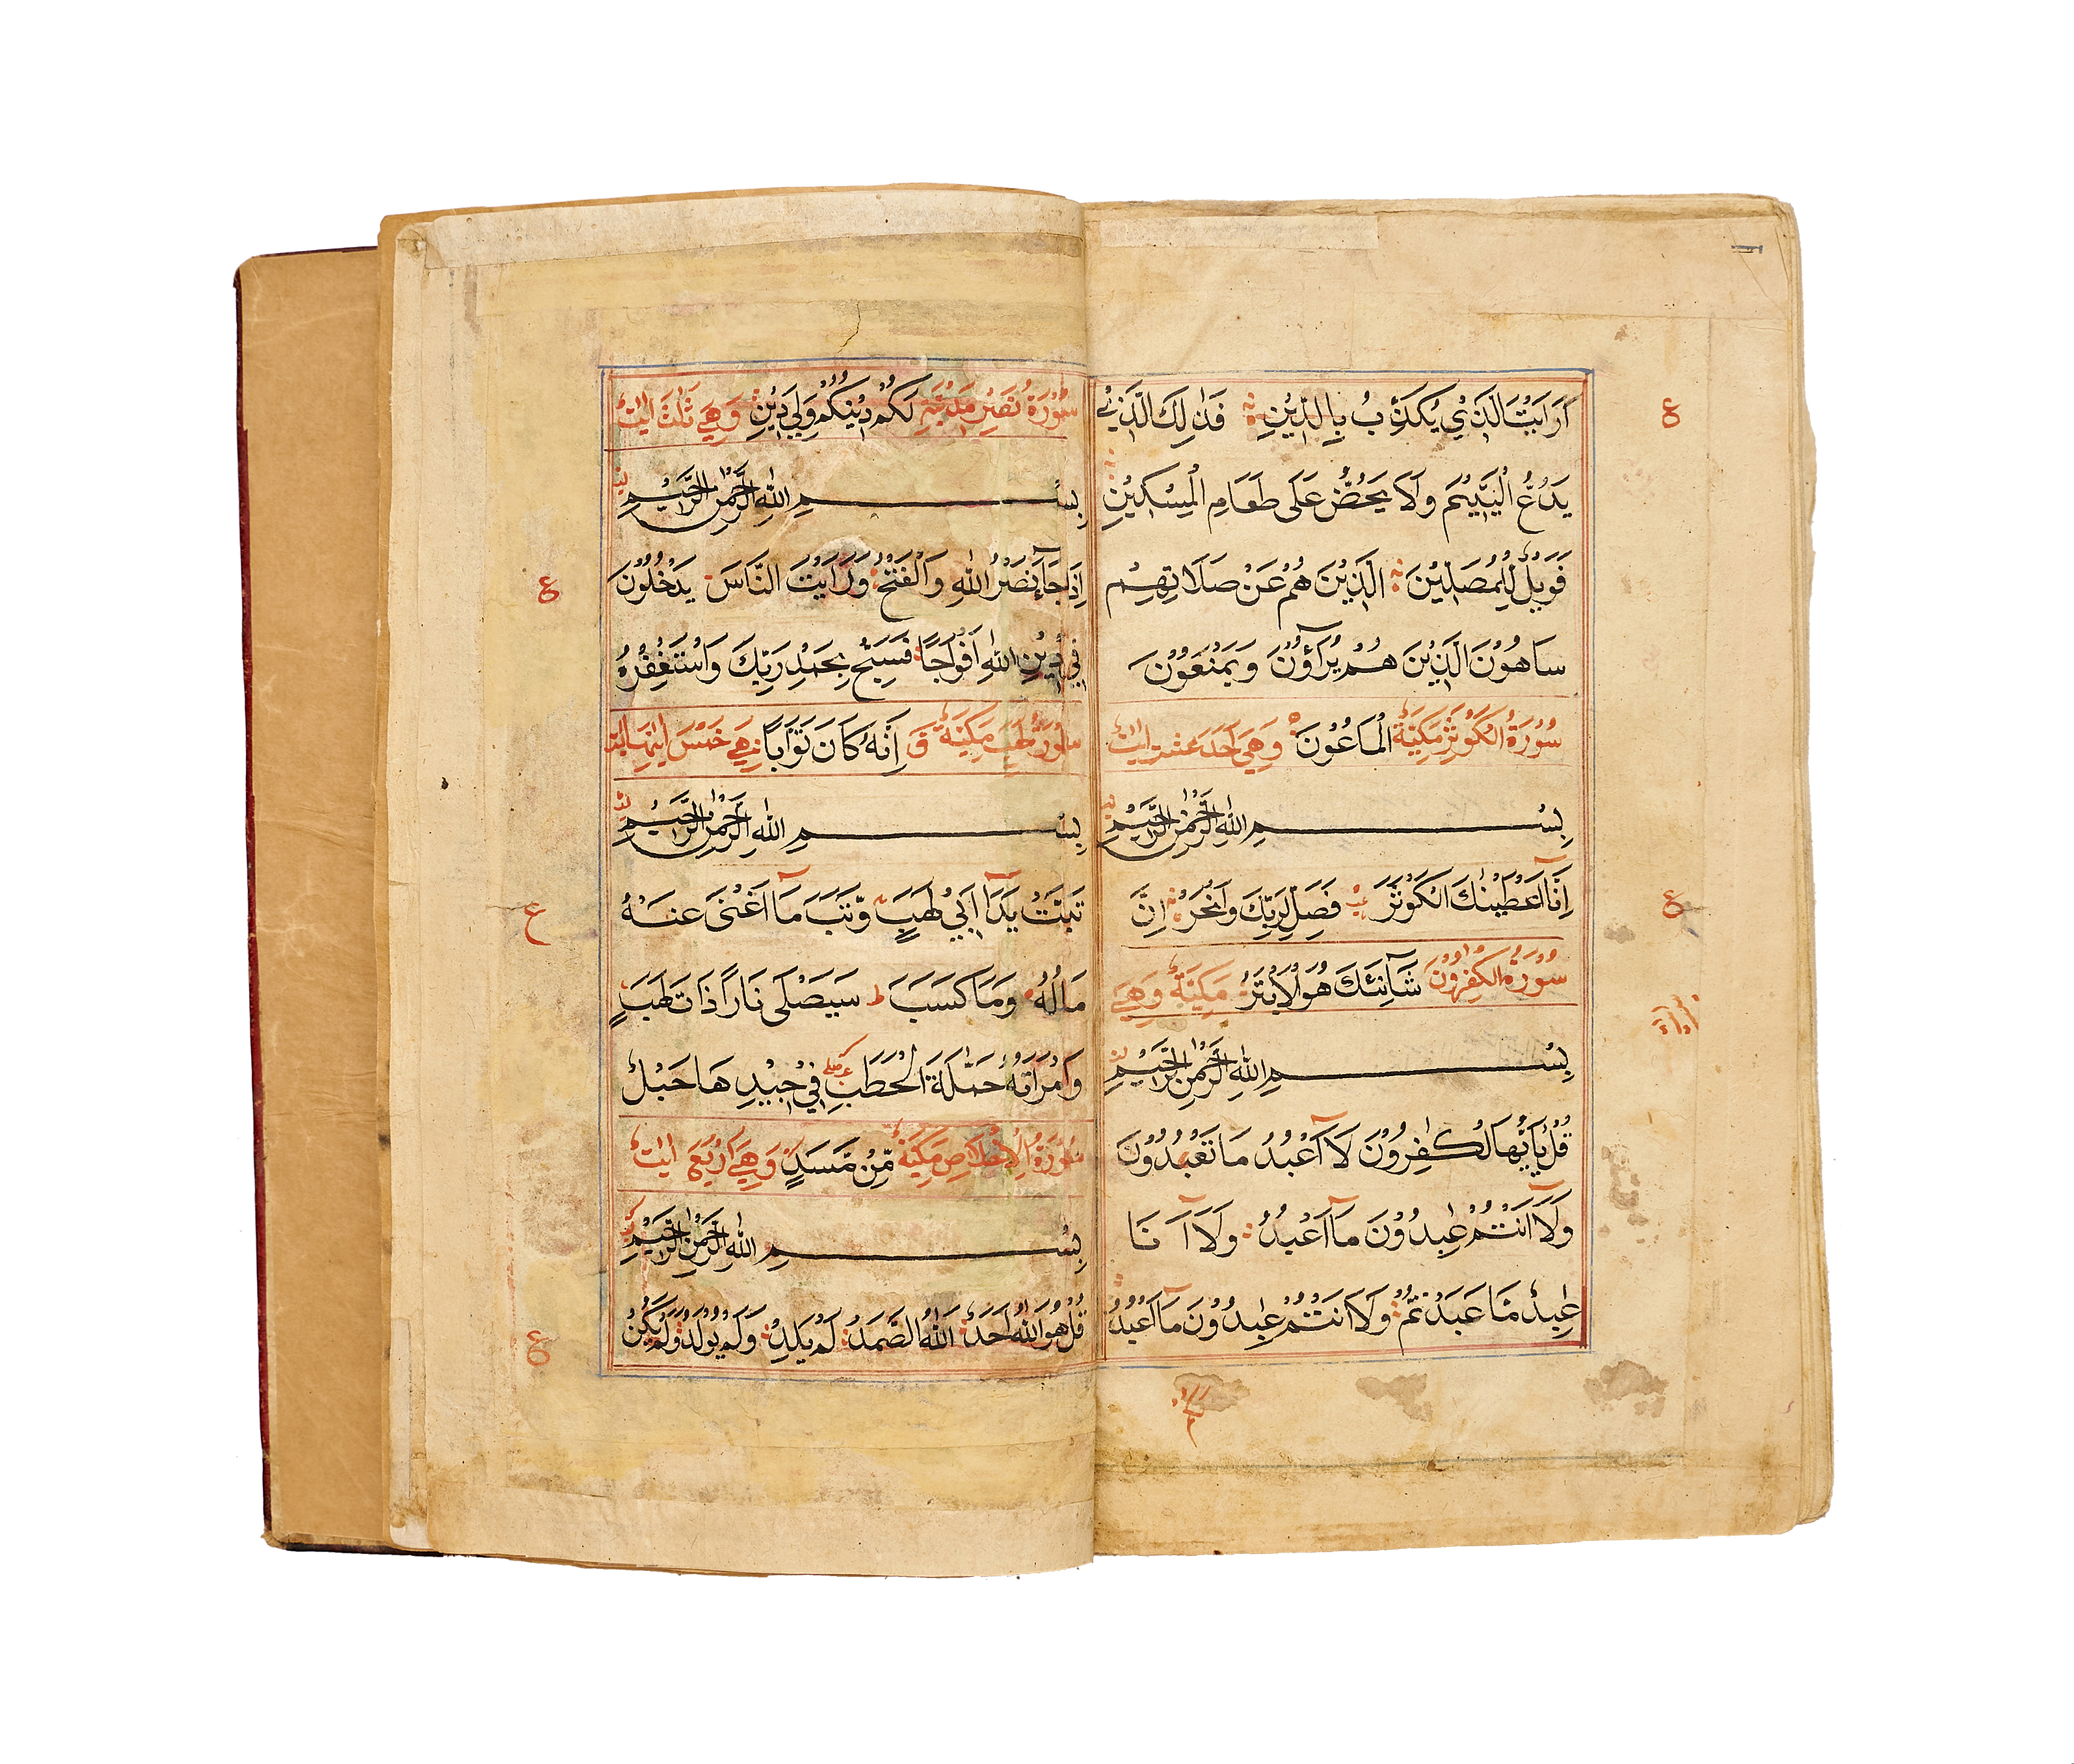 اَرَاَيْتَ الَّذِيْ يُكَذِّبُ بِالدِّيْنِ فَذٰلِكَ الَّذِيْ
يَدُعُّ الْيَتِيْمَ وَلَا يَحُضُّ عَلَى طَعَامِ الْمِسْكِيْنِ
فَوَيْلٌ لِّلْمُصَلِّيْنَ الَّذِيْنَ هُمْ عَنْ صَلَاتِهِمْ
سَاهُوْنَ الَّذِيْنَ هُمْ يُرَآؤُنَ وَيَمْنَعُوْنَ
سُوْرَةُ الْكَوْثَرِ مَكِّيَّةٌ الْمَاعُوْنَ وَهِيَ اَحَدَ عشرت اٰيٰتٌ
بِسْمِ اللّٰهِ الرَّحْمٰنِ الرَّحِيْمِ
اِنَّآ اَعْطَيْنٰكَ الْكَوْثَرَ فَصَلِّ لِرَبِّكَ وَانْحَرْ اِنَّ
سُوْرَةُ الْكٰفِرُوْنَ شَآنِئَكَ هُوَ الْاَبْتَرُ مَكِّيَّةٌ وَهِيَ
بِسْمِ اللّٰهِ الرَّحْمٰنِ الرَّحِيْمِ
قُلْ يٰٓاَيُّهَا الْكٰفِرُوْنَ لَآ اَعْبُدُ مَا تَعْبُدُوْنَ
وَلَآ اَنْتُمْ عٰبِدُوْنَ مَآ اَعْبُدُ وَلَآ اَنَا
عَابِدٌ مَّا عَبَدْتُّمْ وَلَآ اَنْتُمْ عٰبِدُوْنَ مَآ اَعْبُدُ
سُوْرَةُ نَصْرٍ مَدَنِيَّةٌ لَكُمْ دِيْنُكُمْ وَلِيَ دِيْنِ وَهِيَ ثَلٰثَ اٰيٰتٌ
بِسْمِ اللّٰهِ الرَّحْمٰنِ الرَّحِيْمِ
اِذَا جَآءَ نَصْرُ اللّٰهِ وَالْفَتْحُ وَرَاَيْتَ النَّاسَ يَدْخُلُوْنَ
فِيْ دِيْنِ اللّٰهِ اَفْوَاجًا فَسَبِّحْ بِحَمْدِ رَبِّكَ وَاسْتَغْفِرْهُ
سُوْرَةُ لَهَبٍ مَكِّيَّةٌ اِنَّهٗ كَانَ تَوَّابًا وَهِيَ خَمْسَ
بِسْمِ اللّٰهِ الرَّحْمٰنِ الرَّحِيْمِ
تَبَّتْ يَدَآ اَبِيْ لَهَبٍ وَّتَبَّ مَآ اَغْنَى عَنْهُ
مَالُهٗ وَمَا كَسَبَ سَيَصْلَى نَارًا ذَاتَ لَهَبٍ
وَامْرَاَتُهٗ حَمَّالَةَ الْحَطَبِ فِيْ جِيْدِ هَا حَبْلٌ
سُوْرَةُ الْاِخْلَاصِ مَكِّيَّةٌ مِّنْ مَّسَدٍ وَهِيَ اَرْبَعُ اٰيٰتٌ
بِسْمِ اللّٰهِ الرَّحْمٰنِ الرَّحِيْمِ
قُلْ هُوَ اللّٰهُ اَحَدٌ اَللّٰهُ الصَّمَدُ لَمْ يَلِدْ وَلَمْ يُوْلَدْ وَلَمْ يَكُنْ